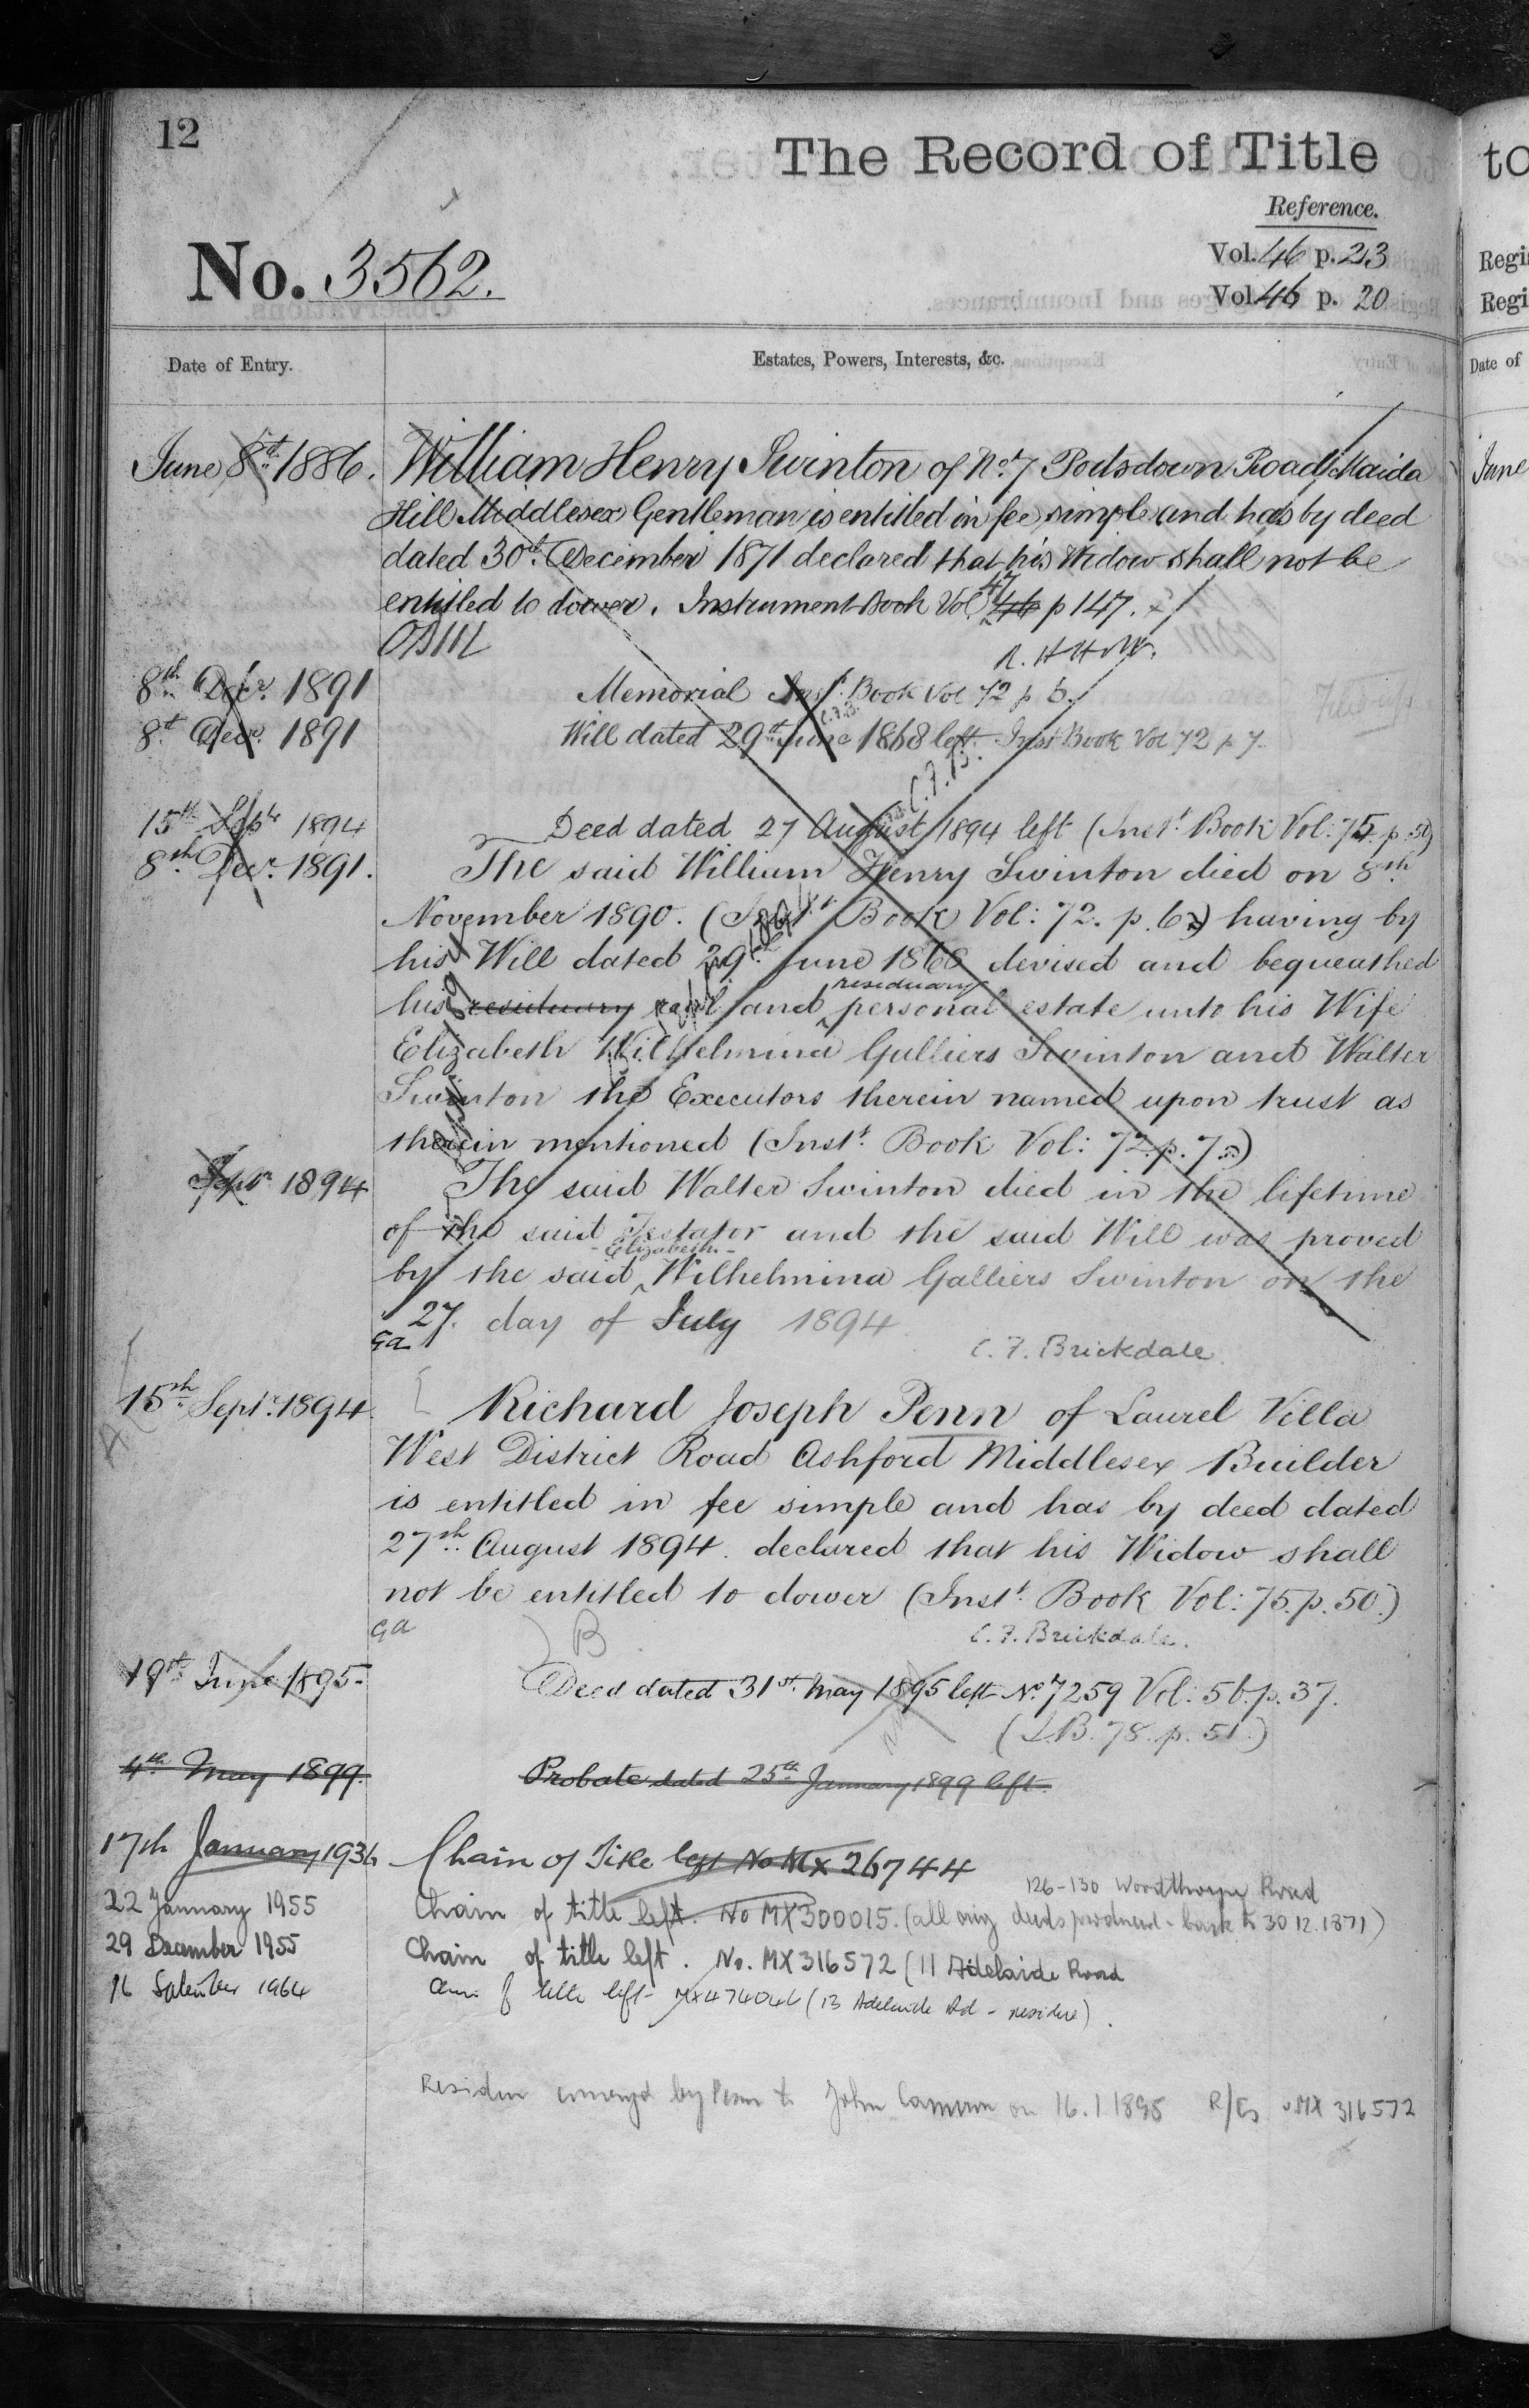 12
The Record of Title
Reference.
No. 3562.
Vol. 46 p. 23
Vol. 46 p. 20
Date of Entry.
Estates, Powers, Interests, &c.
June 8th 1886. William Henry Swinton of No. 7 Portsdown Road Maida
Hill Middlesex Gentleman is entitled in fee simple and has by deed
dated 30th December 1871 declared that his Widow shall not be
entitled to dower. Instrument Book Vol 46 47 p 147.
8th Decr. 1891 Memorial Inst. Book Vol 72 p 6.
8th Decr. 1891 Will dated 29th June 1868 left Inst Book Vol 72 p 7.
C.F.B.
15th Septr 1894 Deed dated 27 August 1894 left (Inst. Book Vol: 75. p. 50)
8th Decr. 1891. The said William Henry Swinton died on 8th
November 1890. (Inst. Book Vol: 72. p. 6.) having by
his Will dated 29th June 1868 devised and bequeathed
his residuary real and residuary personal estate unto his Wife
Elizabeth Wilhelmina Galliers Swinton and Walter
Swinton the Executors therein named upon trust as
therein mentioned (Inst. Book Vol: 72. p. 7.)
Septr 1894 The said Walter Swinton died in the lifetime
of the said Testator and the said Will was proved
by the said Elizabeth Wilhelmina Galliers Swinton on the
27. day of July 1894
Ga
C. F. Brickdale.
15th Septr. 1894. Richard Joseph Penn of Laurel Villa
West District Road Ashford Middlesex Builder
is entitled in fee simple and has by deed dated
27th August 1894. declared that his Widow shall
not be entitled to dower (Inst. Book Vol: 75. p. 50.)
Ga
B
C. F. Brickdale.
19th June 1895. Deed dated 31st May 1895 left No. 7259 Vol: 56. p. 37.
(I.B. 78. p. 51.)
4th May 1899. Probate dated 25th January 1899 left.
17th January 1936 Chain of Title left No MX 26744
126-130 Woodthorpe Road
22 January 1955 Chain of title left. No MX300015. (all orig deeds produced - back to 30 12. 1871)
29 December 1955 Chain of title left. No. MX316572 (11 Adelaide Road
16 September 1964 Chain of title left MX474046 (13 Adelaide Rd - residue).
Residue conveyed by Penn to John Cameron on 16. 1 1895 MX 316572
to
Regi
Regi
Date of
June